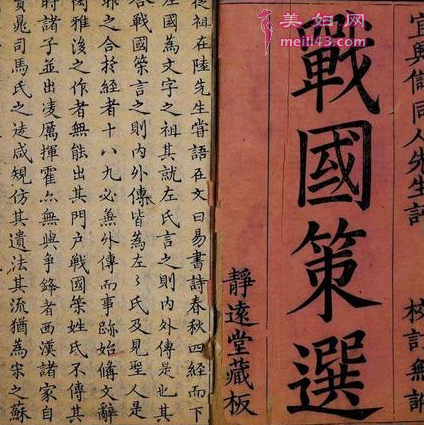 美妇网
meiti43.com
宜興儲同人先生評
戰國策選
校訂無訛
靜遠堂藏板
從祖在陸先生嘗語在文曰易書詩春秋四經而下
左國為文字之祖其就左氏言之則内外傳是也其
合戰國策言之則内外傳皆為左〻氏及見聖人是
非之合於經者十八九必無外傳而事跡始備文辭
閎雅後之作者無能出其門戶戰國策姓氏不傳其
時諸子並出凌厲揮霍亦無與爭鋒者西漢諸家自
賈晁司馬氏之徒咸規仿其遺法其流猶為宋之蘇